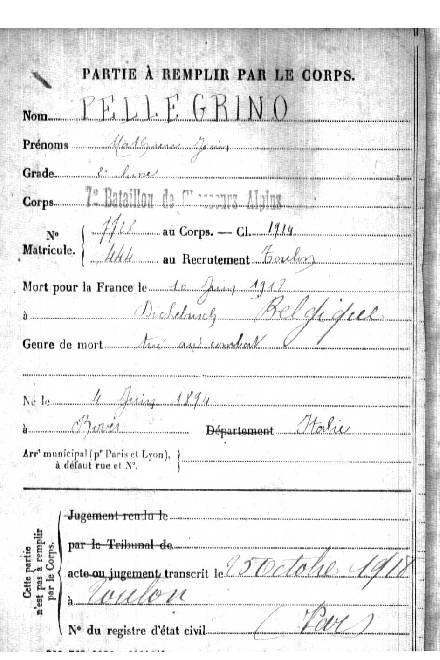 PARTIE À REMPLIR PAR LE CORPS.
Nom PELLEGRINO
Prénoms
Grade 2e
Corps 7e Bataillon de Chasseurs Alpins
No Matricule. { 7728 au Corps. — Cl. 1914
444 au Recrutement Toulon
Mort pour la France le 10 Juin 1918
à Dickebusch Belgique
Genre de mort tué au combat
Né le 4 Juin 1894
à Boves Département Italie
Arrt municipal (pr Paris et Lyon),
à défaut rue et No.
Cette partie n'est pas à remplir par le Corps.
Jugement rendu le
par le Tribunal de
acte ou jugement transcrit le 25 Octobre 1918
à Toulon
No du registre d'état civil (Var)